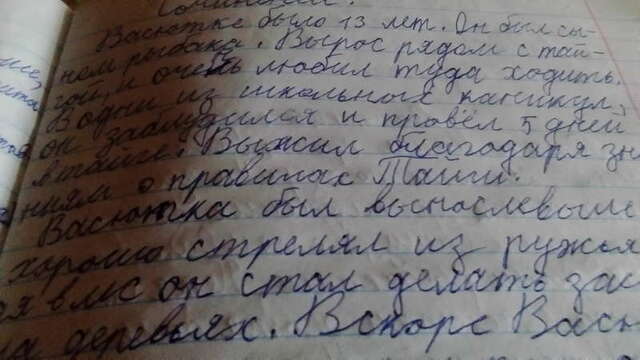 Сочинение.
Васютке было 13 лет. Он был сы-
ном рыбака. Вырос рядом с тай-
гой, и очень любил туда ходить.
В одни из школьных каникул,
он заблудился и провёл 5 дней
в тайге. Выжил благодаря зн
ниям о правилах Тайги.
Васютка был выносл
хорошо стрелял из ружья
он стал делать за
на деревьях. Вскоре Вас